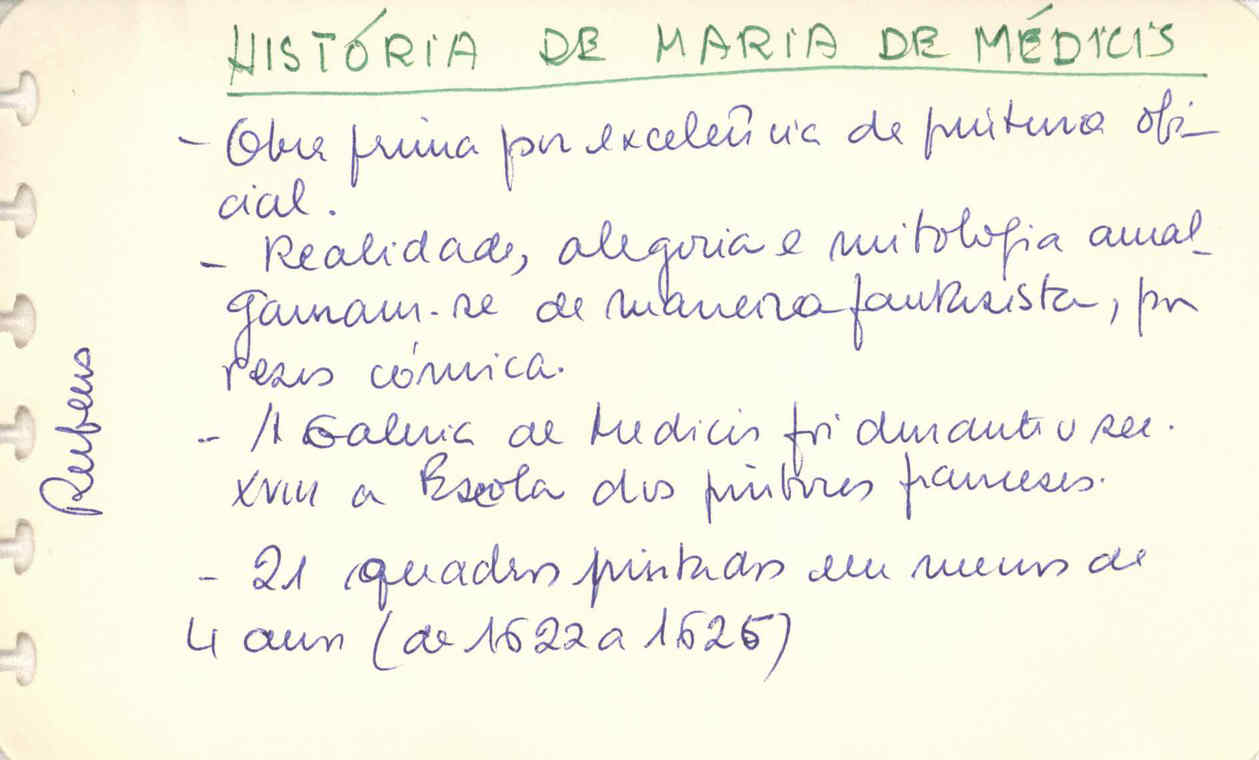 HISTÓRIA DE MARIA DE MÉDICIS
- Obra prima por excelência de pintura ofi-
cial.
- Realidade, alegoria e mitologia amal-
gamam-se de maneira fantasista, por
vezes cómica.
- A Galeria de Medicis foi durante o sec.
XVIII a Escola dos pintores franceses.
- 21 quadros pintados em menos de
4 anos (de 1622 a 1625)
Rubens